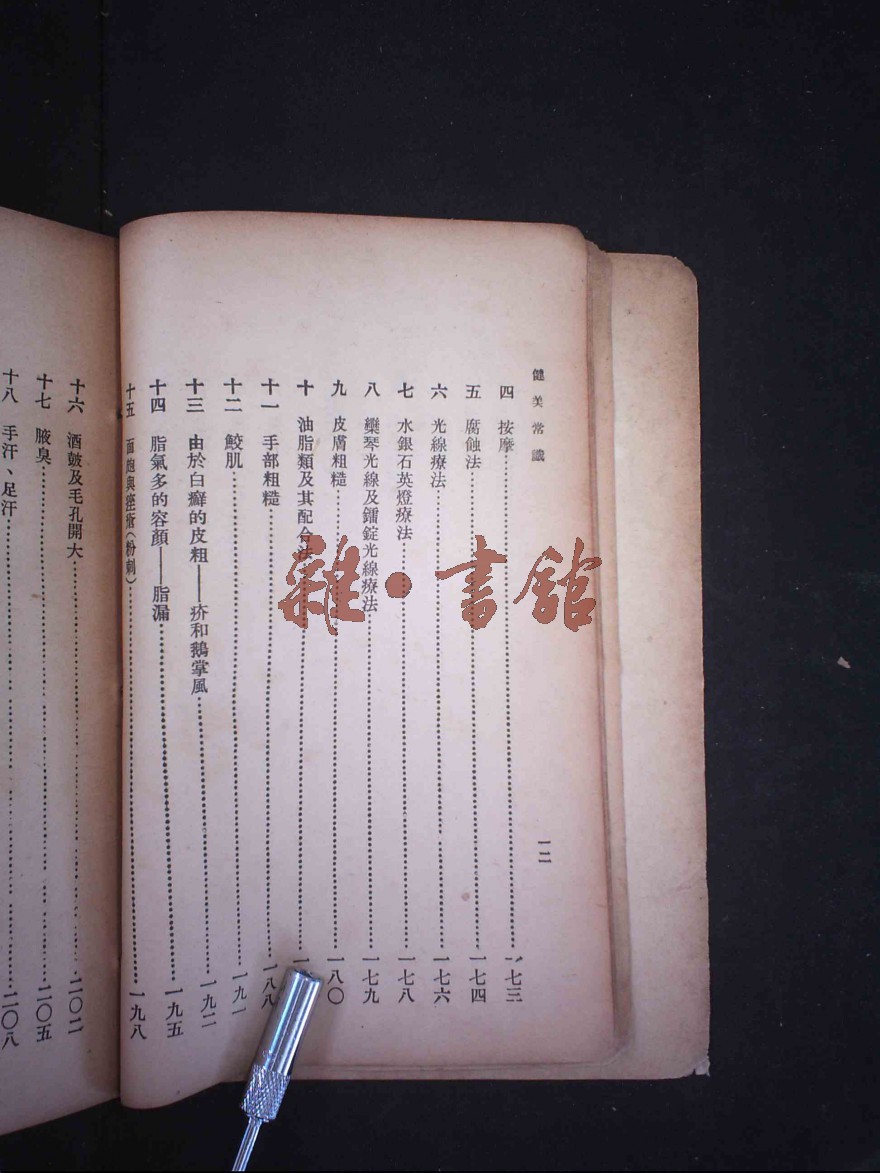 健美常識
一二
四 按摩……一七三
五 腐蝕法……一七四
六 光線療法……一七六
七 水銀石英燈療法……一七八
八 欒琴光線及鐳錠光線療法……一七九
九 皮膚粗糙……一八〇
十 油脂類及其配合法……一
十一 手部粗糙……一八八
十二 鮫肌……一九一
十三 由於白癬的皮粗——疥和鵝掌風……一九二
十四 脂氣多的容顏——脂漏……一九五
十五 面皰與痤瘡(粉刺)……一九八
十六 酒皶及毛孔開大……二〇二
十七 腋臭……二〇五
十八 手汗、足汗……二〇八
雜·書館